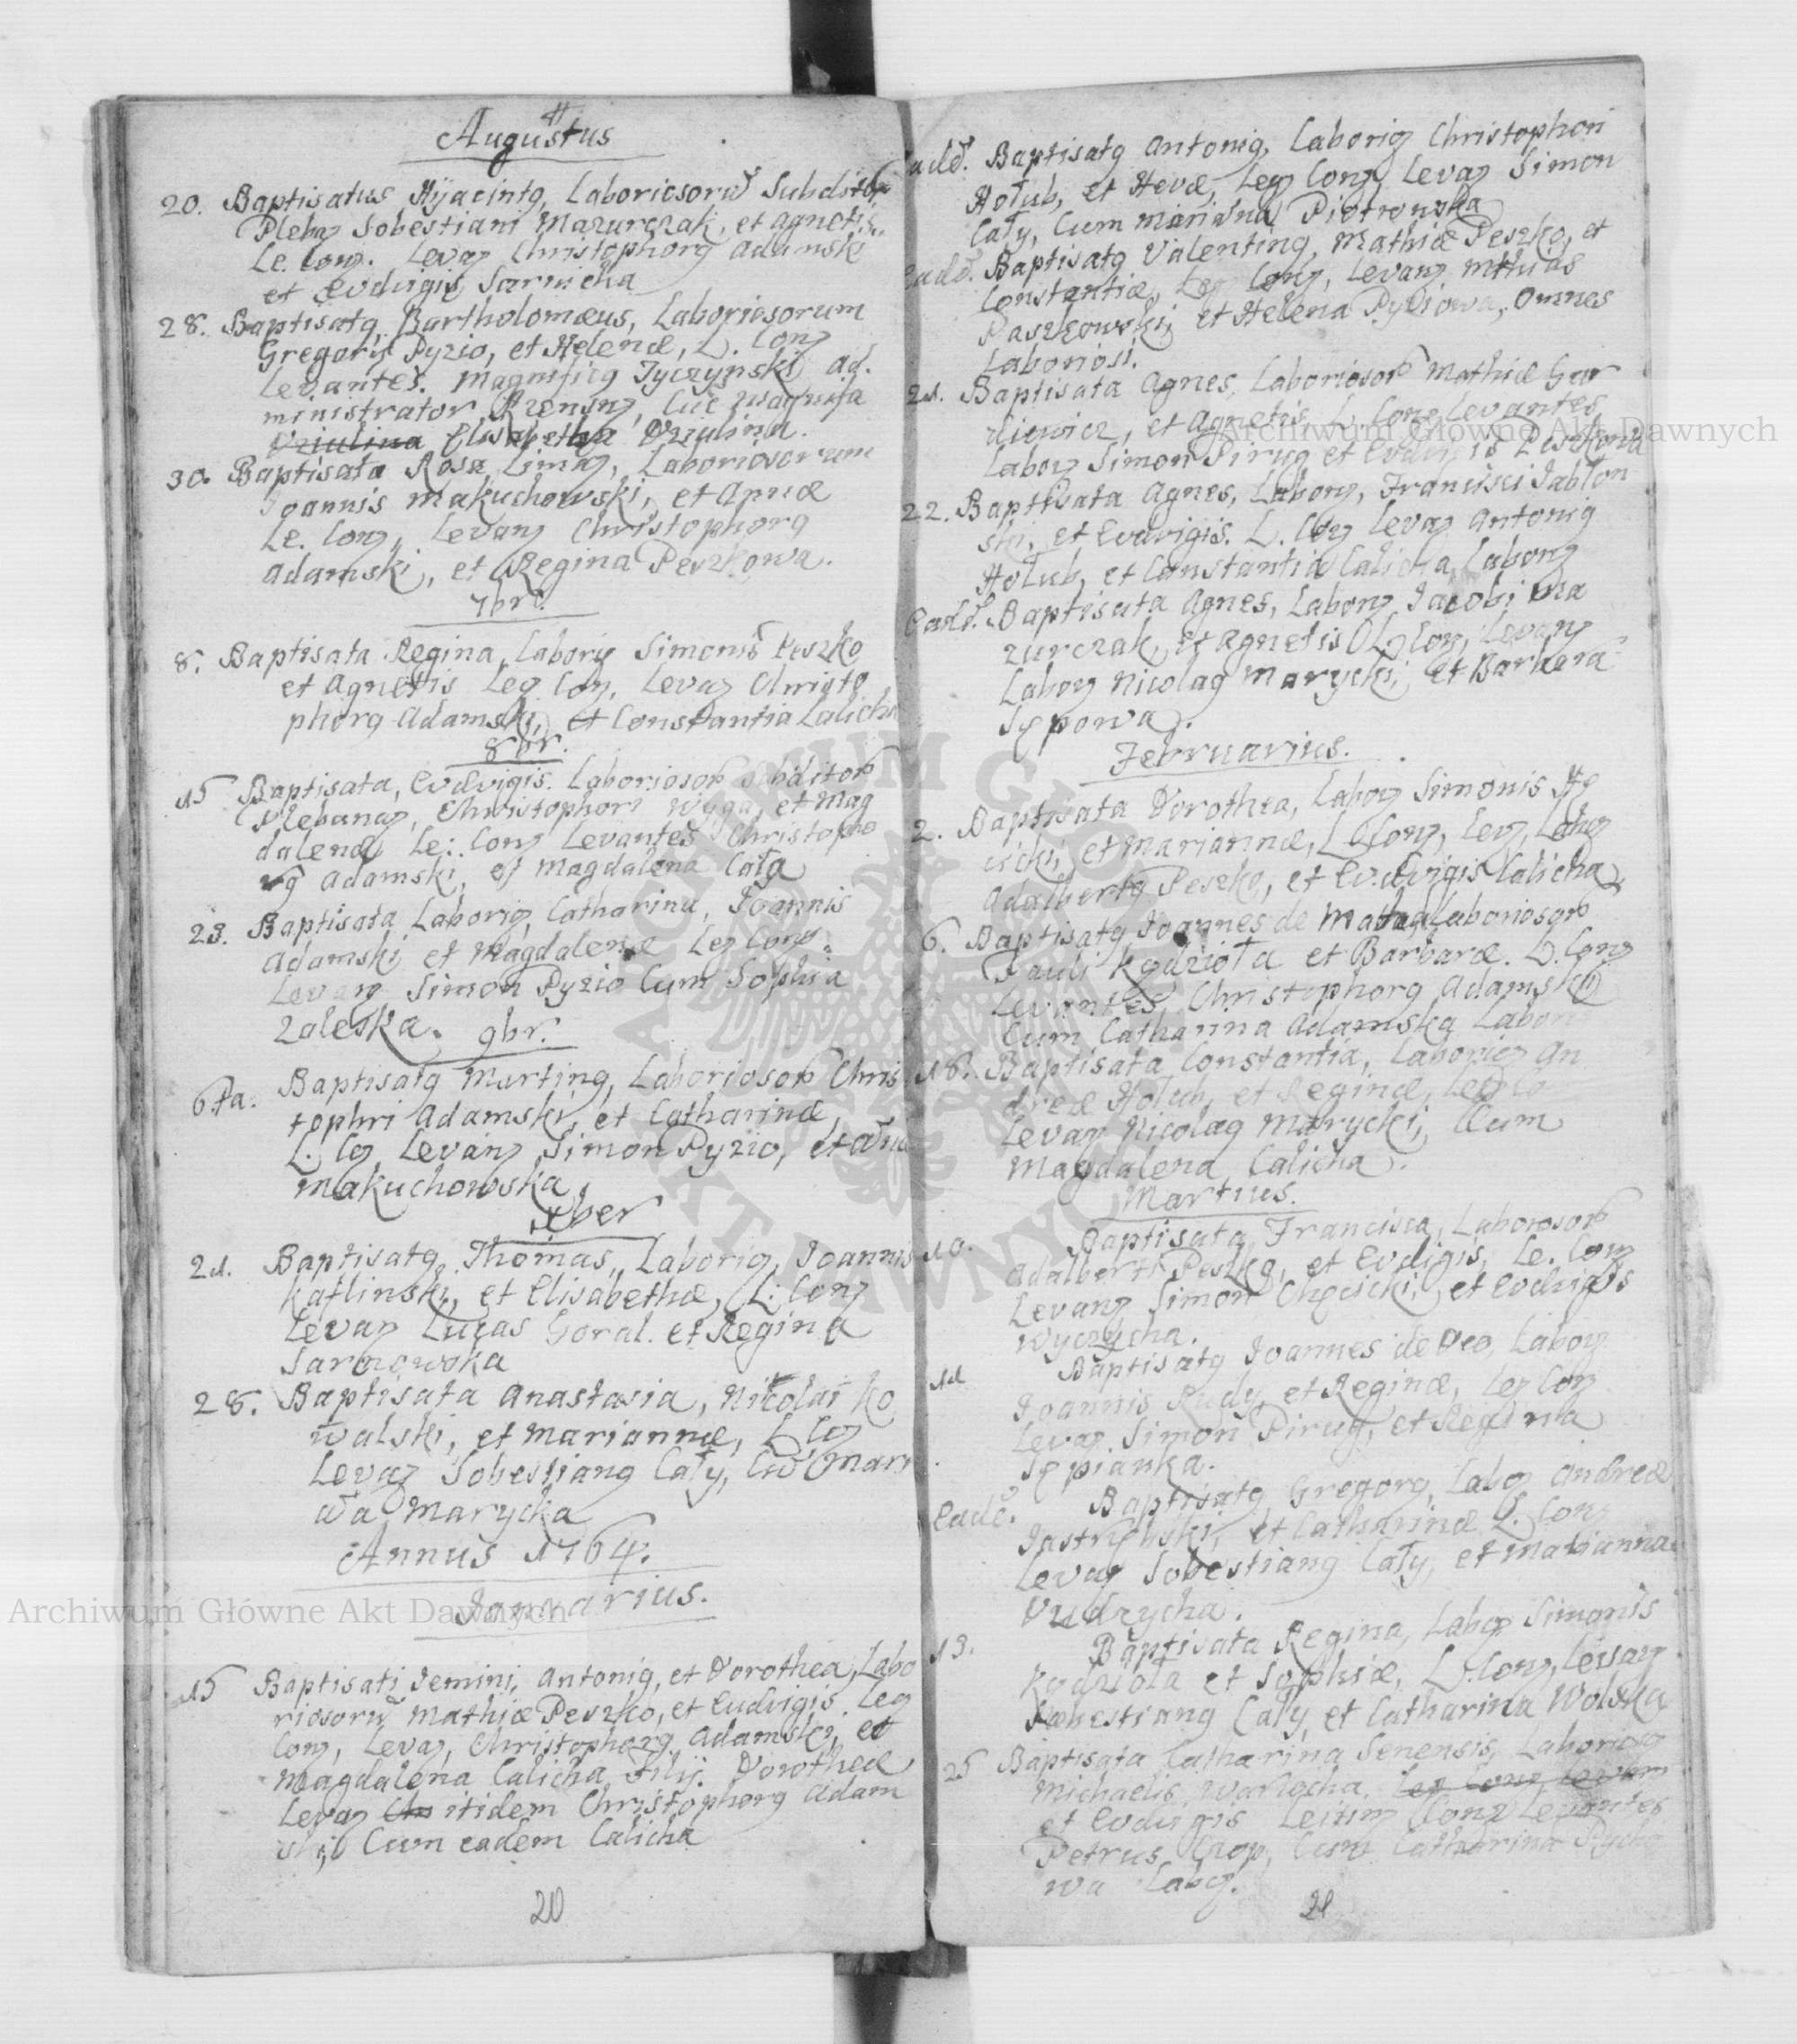 Augustus
20. Baptisatus Hyjacintg, Laboriosorum Subditor
Pleba Sobestiani Mazurczak, et Agnetis
Le. Conz. Levaz Christophorg Adamski
et Evdvigis Sarnicha
28. Baptisatg Bartholomæus, Laboriosorum
Gregorij Pyzio, et Helenæ, L. Conz
Levantes. Magnificg Jyczynski ad-
ministrator
Vziulina Elisabetha Vziulina.
30. Baptisata Rosa Limaz, Laboriosorum
Joannis Makuchowski, et Annæ
Le. Conz, Levanz Christophorg
Adamski, et Regina Peszkowa.
7bre.
8. Baptisata Regina Labory Simonis Peszko
et Agnetis Leg Con, Levaz Christo
phorg Adamski, et Constantia Calicha
8br.
15 Baptisata, Evdvigis. Laboriosor Subditor
Plebanaz, Christophori Wyga, et Mag
dalenæ Le: Conz Levantes Christopho
rg Adamski, et Magdalena Cała
23. Baptisata Laborig Catharina, Joannis
Adamski et Magdalenæ Leg Conz.
Levanz Simon Pyzio Cum Sophia
Zaleska. 9br.
6ta. Baptisatg Marting, Laboriosor Chris
tophri Adamski, et Catharinæ
L. Co Levanz Simon Pyzio, et
Makuchowska
xber
21. Baptisatg Thomas, Laborig, Joannis
Kaflinski, et Elisabethæ, L: Conz
Levaz Lucas Goral. et Regina
Sarnowska
28. Baptisata Anastasia, Nicolai Ko
walski, et Mariannæ, L Coz
Levaz Sobestiang Cały, Cum Mari
Marycka
Annus 1764.
Januarius.
15 Baptisati Jemini, Antonig, et Dorothea, Labo
riosorum Mathiæ Peszko, et Eudvigis Leg
Conz, Levaz, Christophorg Adamski, et
Magdalena Calicha filij. Dorotheæ
Levaz Chr itidem Christophorg Adam
ski, Cum eadem Calicha
20
Eadē. Baptisatg Antonig, Laborig Christophori
Hołub, et Hevæ, Leg Conz Levaz Simon
Cały, Cum Marianna Piotrowska
Eadē. Baptisatg Valenting, Mathiæ Peszko, et
Constantiæ, Leg Conz, Levanz Mthias
Paszkowski, et Helena Pyziowa, Omnes
Laboriosi.
21. Baptisata Agnes, Laboriosor Mathiæ Gur
et Agnetis, L. Conz Levantes
Laboz Simon Pirug et Evdvigis Peszkowa
22. Baptisata Agnes, Laborz, Francisci Jabłon
ski, et Evdvigis. L. Coz Levaz Antonig
Hołub, et Constantia Calicha Laborz
Eadē. Baptisata Agnes, Laborz Jacobi Ma
zurczak, et Agnetis L Con, Levanz
Laboz Nicolag Marycki, et Barbara
Sępowa.
Februarius.
2. Baptisata Dorothea, Laboz Simonis
et Mariannæ, L Conz, Levz, Laboz
Adalbertg Peszko, et Evdvigis Calicha
6. Baptisatg Joannes de Matha Laboriosor
Pauli Kędzioła et Barbaræ. L. Conz
Levantes Christophorg Adamski
Cum Catharina Adamska Labor
18. Baptisata Constantia, Laborioz An
dreæ Hołub, et Reginæ, Leg Co
Levaz Nicolag Marycki, Cum
Magdalena Calicha.
Martius.
10. Baptisata Francisca, Laboriosor
Adalberti Peszko, et Evdigis, Le. Conz
Levanz Simon Chęcicki, et Evdvigis
Wyczycha.
11 Baptisatg Joannes de Deo, Laboz
Joannis Rudy, et Reginæ, Leg Con
Levaz Simon Pirug, et Regina
Sępianka.
Eadē. Baptisatg Gregorg, Laboz Andreæ
Jastrzębski, et Catharinæ L. Conz
Levaz Sobestiang Cały, et Marianna
Vudzycha.
13. Baptisata Regina, Laboz Simonis
Kędzioła et Sophiæ, L. Conz, Levaz
Sobestiang Cały, et Catharina Wolska
25 Baptisata Catharina Senensis, Laborioz
Michaelis Warzocha. Leg Conz Levan
et Evdvigis Leitim Conz Levantes
Petrus Czop, Cum Catharina Pycho
wa Laboz.
21
Archiwum Główne Akt Dawnych
Archiwum Główne Akt Dawnych
ARCHIWUM GŁÓWNE AKT DAWNYCH